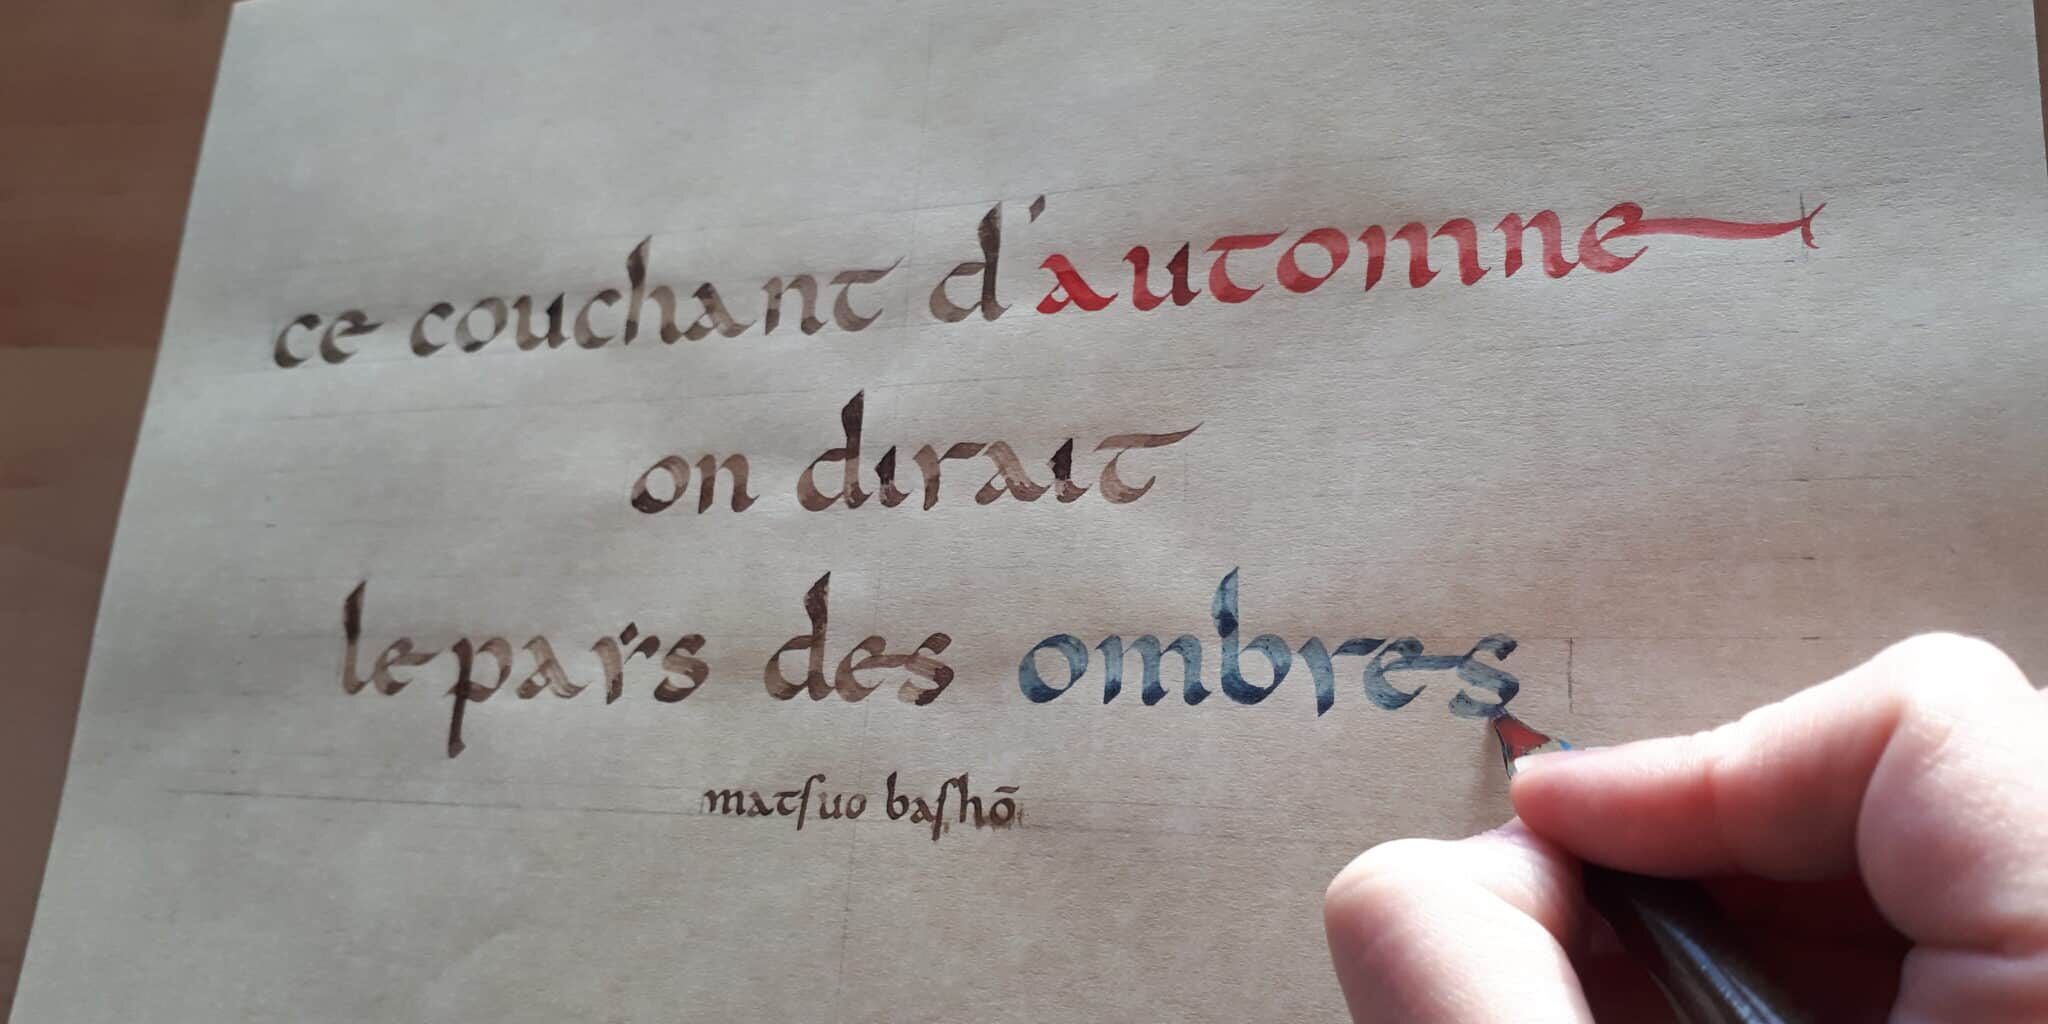 ce couchant d'automne
on dıraıt
le paẏs des ombres
matſuo baſhō